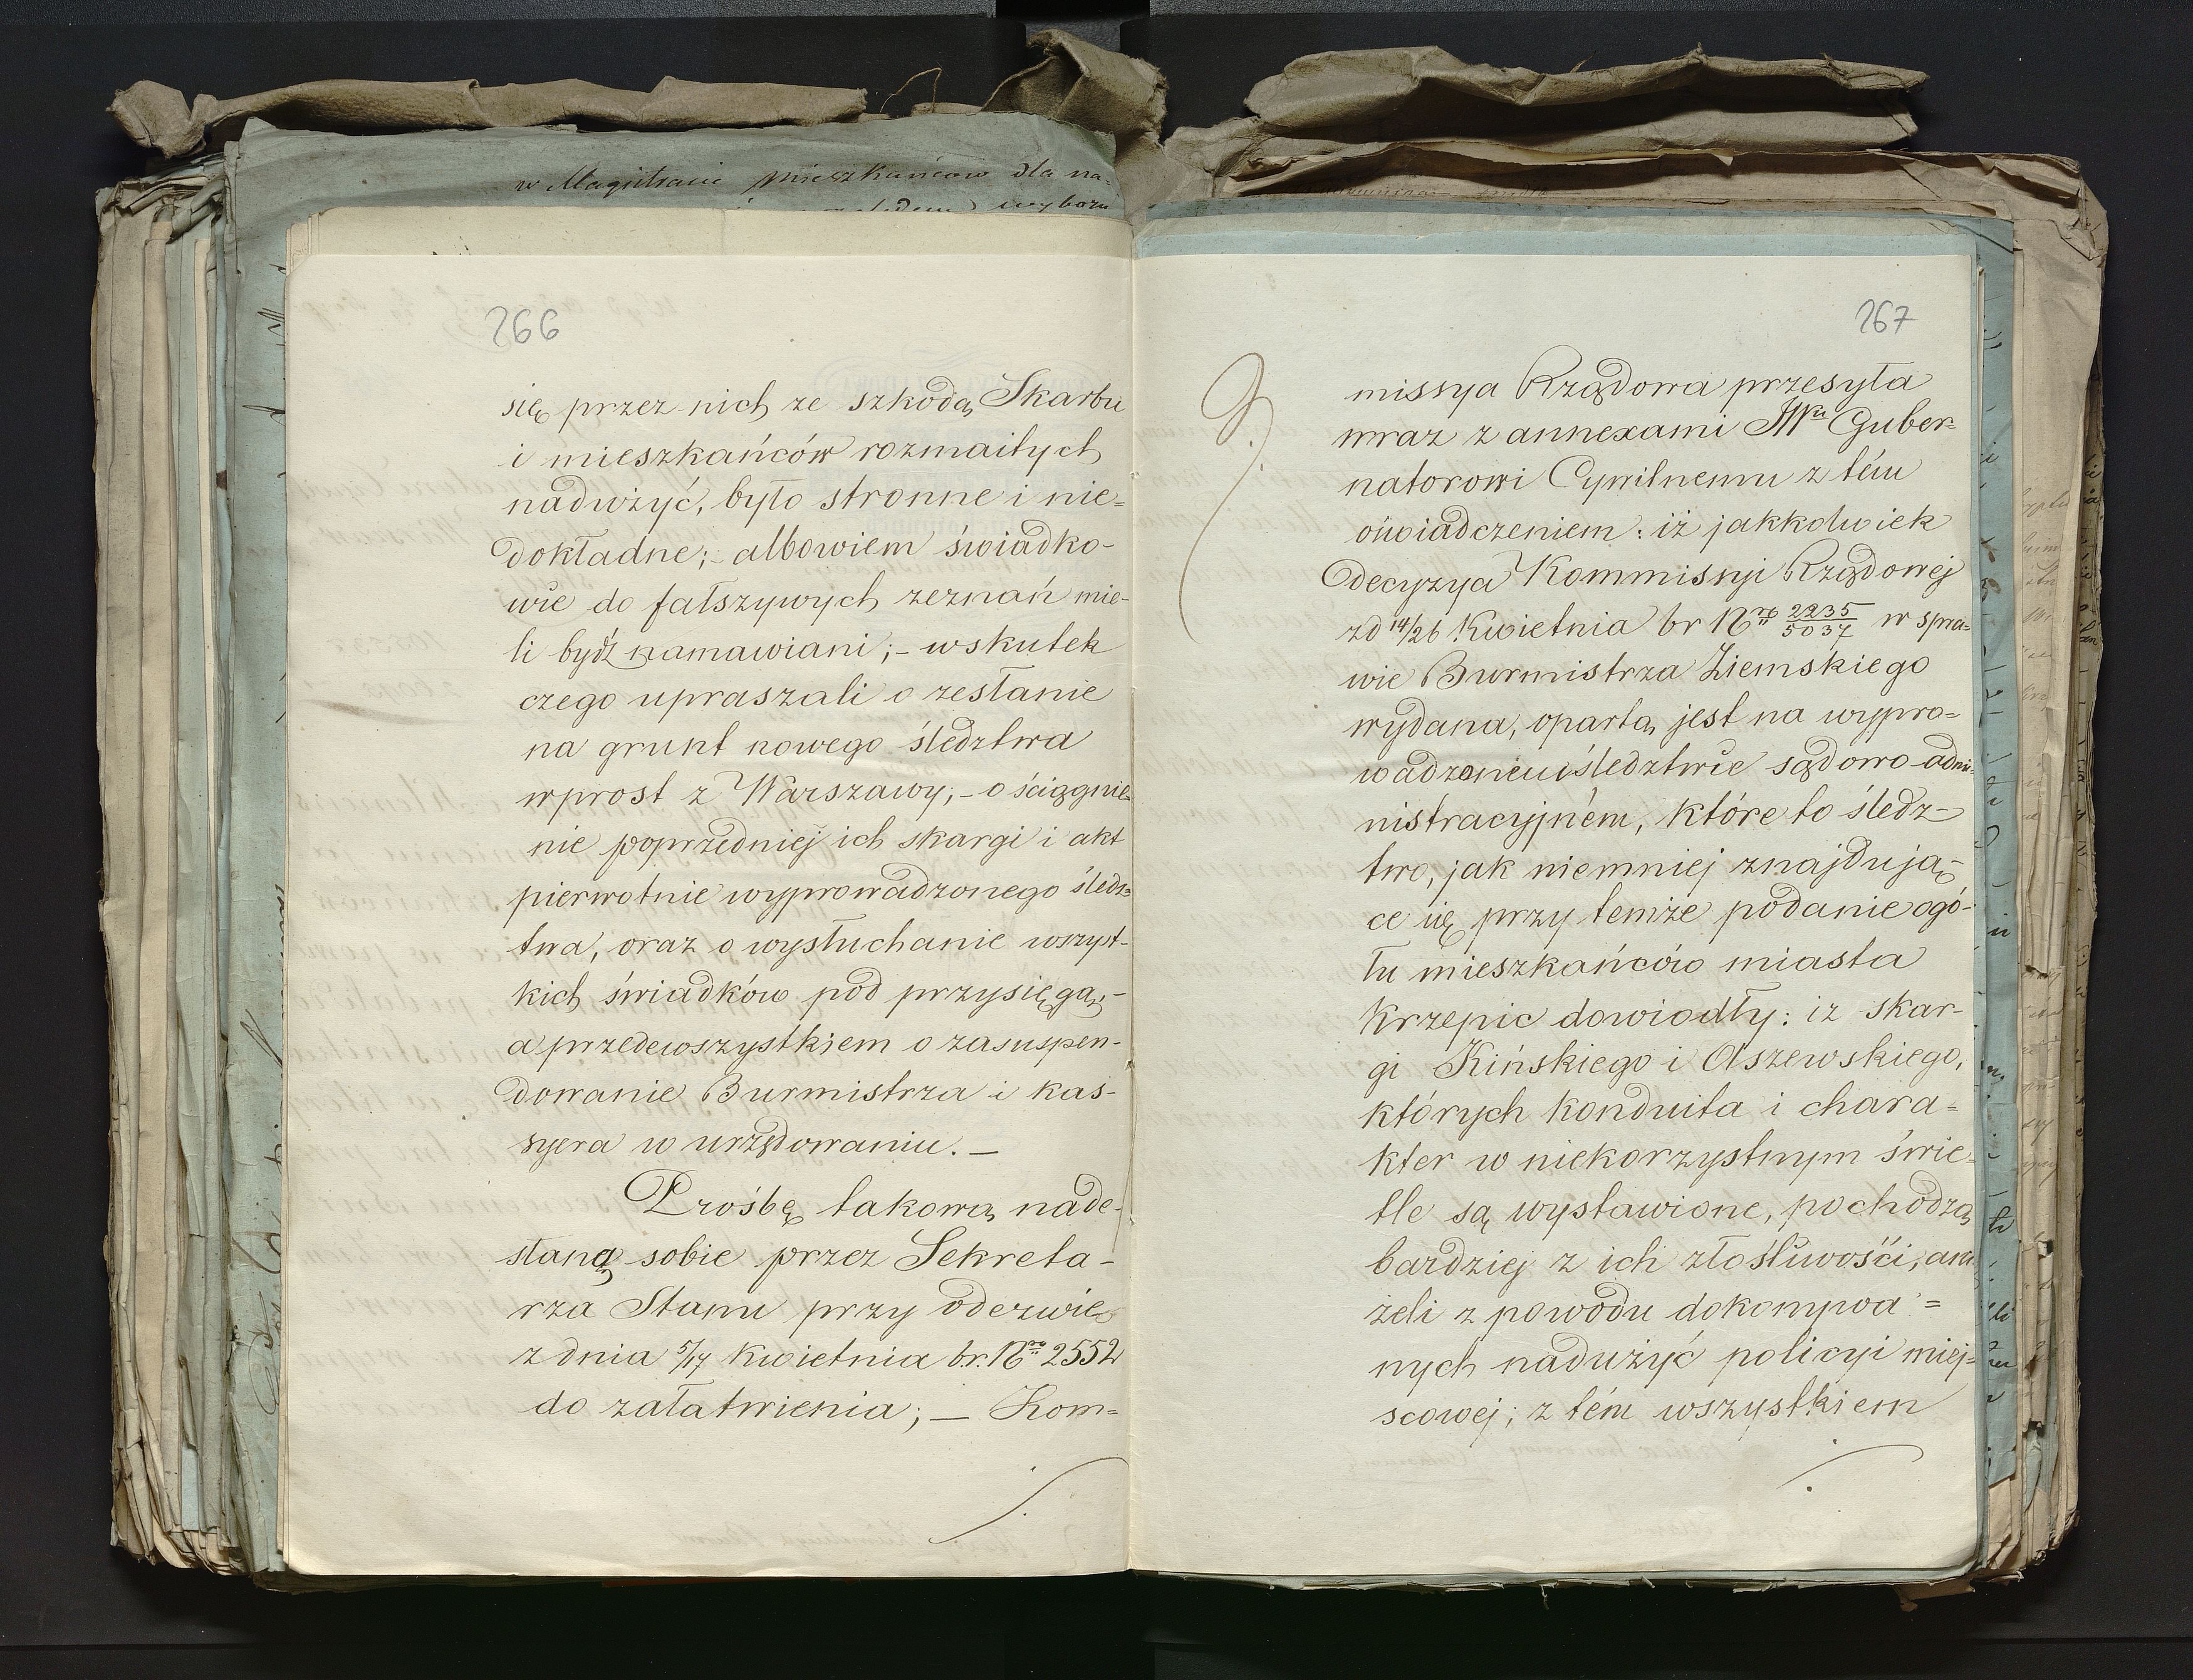 w Magistracie mieszkańców dla na-
wyboru
266
się przez nich ze szkodą Skarbu
i mieszkańców rozmaitych
nadużyć, było stronne i nie=
dokładne; - albowiem świadko-
wie do fałszywych zeznań mie-
li bydź namawiani; - wskutek
czego upraszali o zesłanie
na grunt nowego śledztwa
wprost z Warszawy; - o ściągnie-
nie poprzedniej ich skargi i akt
pierwotnie wyprowadzonego śledz=
twa, oraz o wysłuchanie wszyst-
kich świadków pod przysięgą, -
a przedewszystkiem o zasuspen-
dowanie Burmistrza i kas-
syera w urzędowaniu. —
Prośbę takową nade-
słaną sobie przez Sekreta-
rza Stanu przy odezwie
z dnia 5/17 Kwietnia br. Nro 2552
do załatwienia; — Kom=
267
missya Rządowa przesyła
wraz z annexami JWu Guber=
natorowi Cywilnemu z tém
oświadczeniem: iż jakkolwiek
decyzya Kommissyi Rządowej
zd 14/26 Kwietnia br Nro 2235/5037 w spra=
wie Burmistrza Ziemskiego
wydana, opartą jest na wypro=
wadzoném śledztwie sądowo-admi=
nistracyjném, które to śledz=
two, jak niemniej znajdują-
ce się przy temże podanie ogó-
łu mieszkańców miasta
Krzepic dowiodły: iż skar-
gi Kińskiego i Olszewskiego,
których konduita i chara=
kter w niekorzystnym świe=
tle są wystawione, pochodzą
bardziej z ich złośliwości, ani
żeli z powodu dokonywa=
nych nadużyć policyi miej=
scowej; z tém wszystkiem